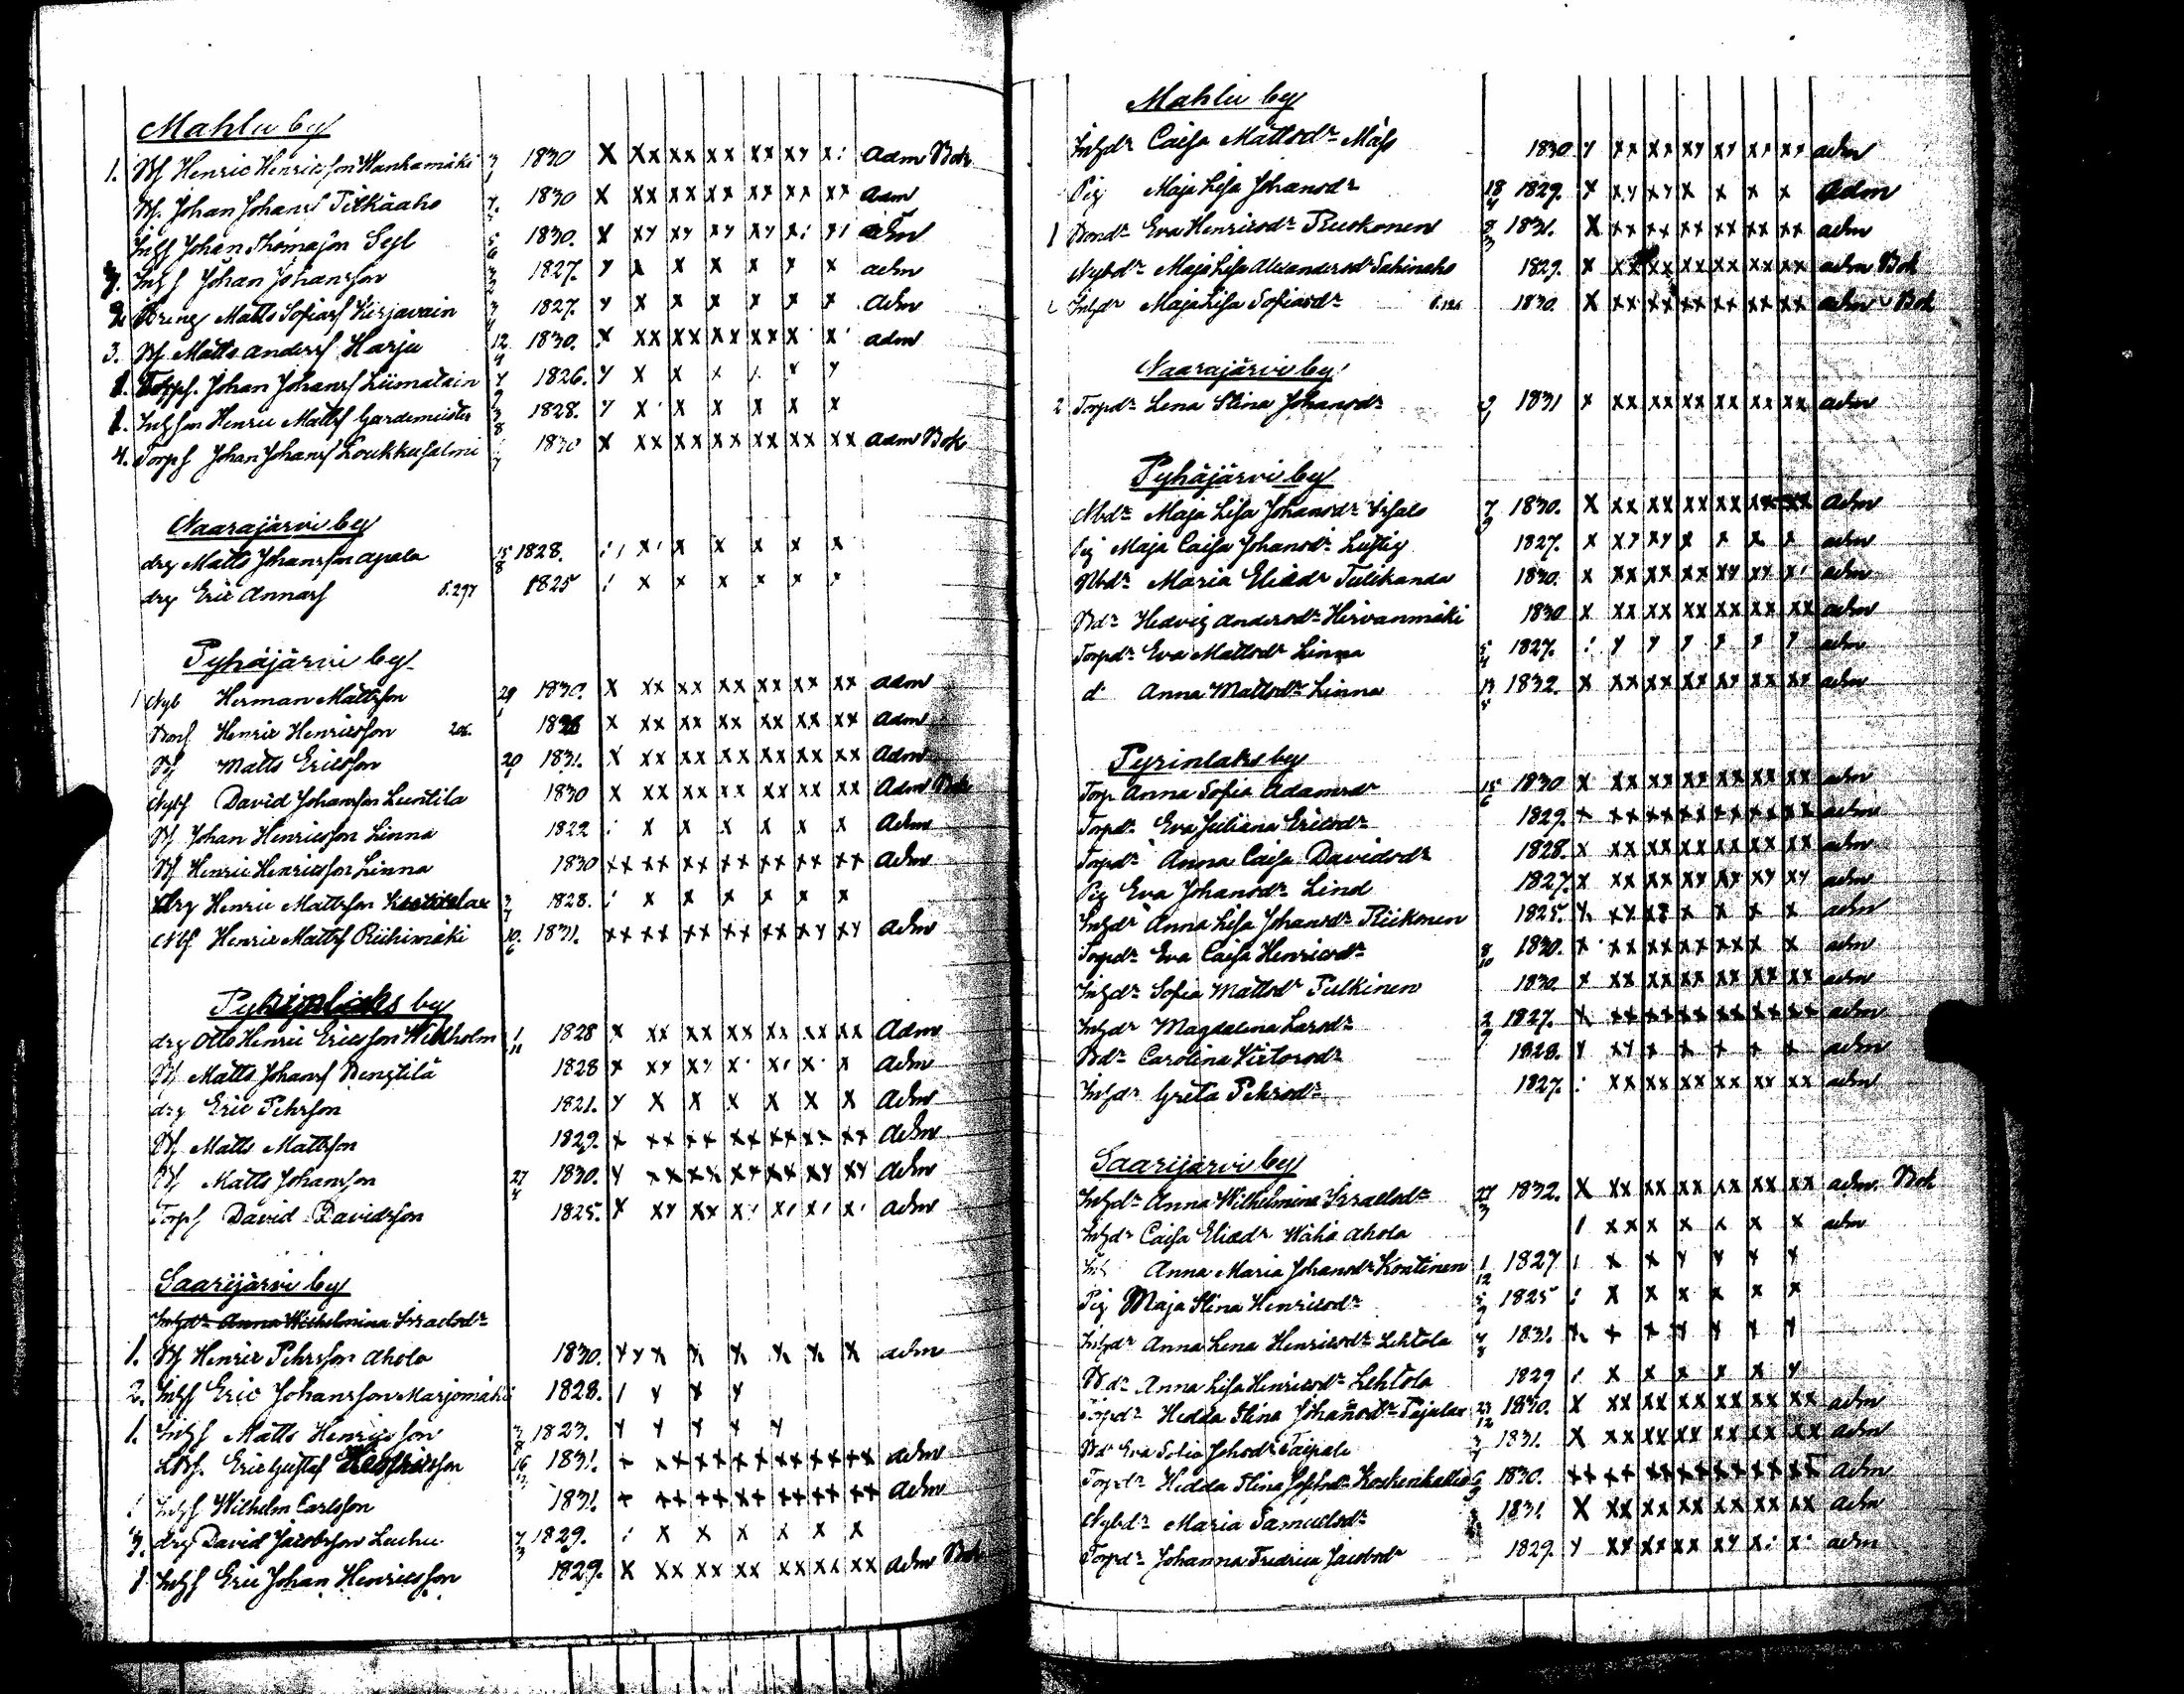 Mahlu by
1. Bf Henric Henricsson Hankamäki 3/1 1830 X Xx xx xx xx xy x: adm Bok
Bf. Johan Johansf Pitkäaho 1830 X xx xx xx xx xx xx adm
Inhf Johan Thomasson Segl 5/6 1830. X xy xy xy xy x: x/ adm
Inhf Johan Johansson 1827. y x x x x x x adm
Dreng Matts Sofiasf Kirjavain 3/4 1827. y x x x x x x adm
3. Bf Matts Andersf Harju 12/4 1830. x xx xx xx xx x x adm
Torpf. Johan Johansf Liimatain 1826. y x x x / x y
Inhson Henric Mattsf Gardemeister 3/8 1828. y x x x x x x
4. Torpf Johan Johansf Loukkusalmi 1830 X xx xx xx xx xx xx adm Bok
Naarajärvi by
drg Matts Johansson Apala 15/8 1828. : / x x x x x x
drg Eric Annasf S. 297 1825 : x x x x x x
Pyhäjärvi by
1 Nyb Herman Mattsson 29/1 1830. X xx xx xx xx xx xx adm
Bonf Henric Henricsson 206. x xx xx xx xx xx xx adm
Bf Matts Ericsson 20/1 1831. X xx xx xx xx xx xx adm
Nybf David Johansson Luntila 1830 x xx xx xx xx xx xx adm Bok
Bf Johan Henricsson Linna 1822 : x x x x x x adm
Bf Henric Henricsson Linna 1830 xx xx xx xx xx xx xx adm
drg Henric Mattsson 1828. : x x x x x x
Nbf Henric Mattsf Riihimäki 10/6 1831. xx xx xx xx xx xy xy adm
by
drg Otto Henric Ericsson Wikholm 1/11 1828 x xx xx xx xx xx xx adm
Bf Matts Johansf Bengtilä 1828 x xy xy x x x x adm
drg Eric Pehrson 1821. y x x x x x x adm
Bf Matts Mattsson 1829. x xx xx xx xx xx xx adm
Bf Matts Johansson 27/4 1830. y xx xx xx xx xy xy adm
Torpf David Davidsson 1825. x xy xx x/ x/ x/ x/ adm
Saarijärvi by
Inhdr Anna Wilhelmina Israelsdr
1. Bf Henric Pehrsson Ahola 1830. y y x x x x x x adm
2. Inhf Eric Johansson Marjomäki 1828. / y x y
1. Inhf Matts Henricsson 3/8 1823. y y y y y
Eric Gustaf 16/12 1831. x xx xx xx xx xx xx adm
1 Inhf Wilhelm Carlsson 1831 x xx xx xx xx xx xx adm
3. drg David Jacobsson Luuhu 7/3 1829. : x x x x x x
1 Inhf Eric Johan Henricsson 1829. X xx xx xx xx xx xx adm Bok
Mahlu by
Inhdr Caisa Mattsdr Mäss 1830 y xx xx xy xy xx xy adm
Pig Maja Lisa Johansdr 18/4 1829. x xy xy x x x x adm
1 Bondr Eva Henricsdr Ruskonen 8/3 1831. X xx xx xx xx xx xx adm
Nybdr Maja Lisa Alexandersdr Sahinaho 1829. x xx xx xx xx xx xx adm Bok
Inhdr Maja Lisa Sofiasdr 1830. X xx xx xx xx xx xx adm Bok
Naarajärvi by
2 Torpdr Lena Stina Johansdr 1831 x xx xx xx xx xx xx adm
Pyhäjärvi by
Nbdr Maja Lisa Johansdr 7/9 1830. X xx xx xx xx xx xx adm
Pig Maja Caisa Johansdr Lustig 1827. x xy xy x x x x adm
Nbdr Maria Eliædr Tulikanda 1830. x xx xx xx xy xy x/ adm
Bdr Hedvig Andersdr Hirvanmäki 1830 x xx xx xx xx xx xx adm
Torpdr Eva Mattsdr Linna 5/4 1827. : y y y y y y adm
d: Anna Mattsdr Linna 1832. x xx xx xx xx xx xx adm
Pyrinlaks by
Torp Anna Sofia Adamsdr 15/6 1830 x xx xx xx xx xx xx adm
Torpdr Eva Juliana Ericsdr 1829. x xx xx xx xx xx xx adm
Torpdr Anna Caisa Davidsdr 1828. x xx xx xx xx xx xx adm
Pig Eva Johansdr Lind 1827. x xx xx xy xy xy xy adm
Inhdr Anna Lisa Johansdr Riikonen 1825. y xy xx x x x x adm
Torpdr Eva Caisa Henricsdr 8/10 1830. x xx xx xx xx x x adm
Inhdr Sofia Mattsdr Pulkinen 1830. x xx xx xx xx xx xx adm
Inhdr Magdalena Larsdr 1827. x xx xx xx xx xx xx adm
Bdr Carolina Victorsdr 1828. y xy x x x x x adm
Inhdr Greta Pehrsdr 1827. : xx xx xx xx xx xx adm
Saarijärvi by
Inhdr Anna Wilhelmina Israelsdr 27/3 1832. X xx xx xx xx xx xx adm. Bok
Inhdr Caisa Eliædr Wäha Ahola / xx x x x x x adm
Inh Anna Maria Johansdr Kontinen 1/12 1827 / x x y y y y
Pig Maja Stina Henricsdr 1825 : x x x x x x
Inhdr Anna Lena Henricsdr Lehtola 4/8 1831. x x x y y y y
Bdr Anna Lisa Henricsdr Lehtola 1829 / x x x x x y
Torpdr Hedda Stina Johansdr Pajulax 1830. x xx xx xx xx xx xx adm
Bdr Eva Sofia Johsdr Taipale 1831. X xx xx xx xx xx xx adm
Torpdr Hedda Stina Koskenkallio 1830. xx xx xx xx xx xx xx adm
Nybdr Maria Samuelsdr 1831. X xx xx xx xx xx xx adm
Torpdr Johanna Fredrica Jacobsdr 1829. y xy xx xx xy x: x: adm